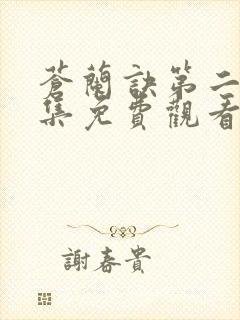 蒼蘭訣第二
集免費觀看
謝春貴